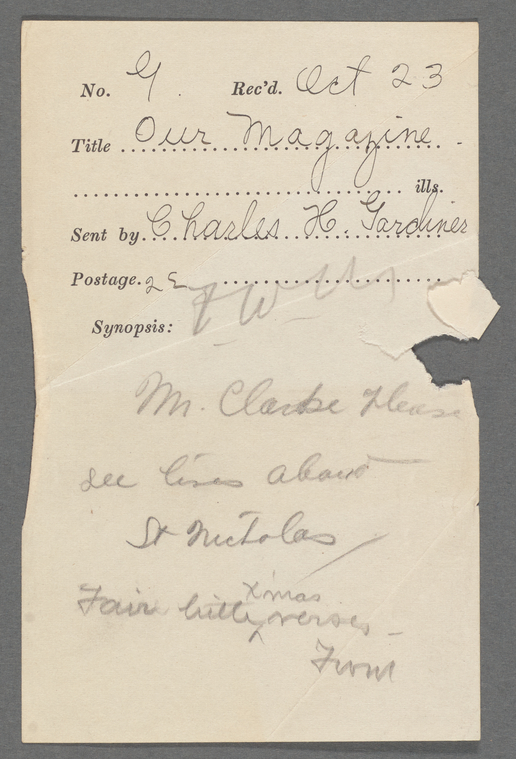 No. 9. Rec'd. Oct 23
Title Our Magazine.
ills.
Sent by Charles H. Gardiner
Postage. 2 E
Synopsis:
Mr. Clarke please
see lines about
St Nicholas
X'mas
Fair little verses -